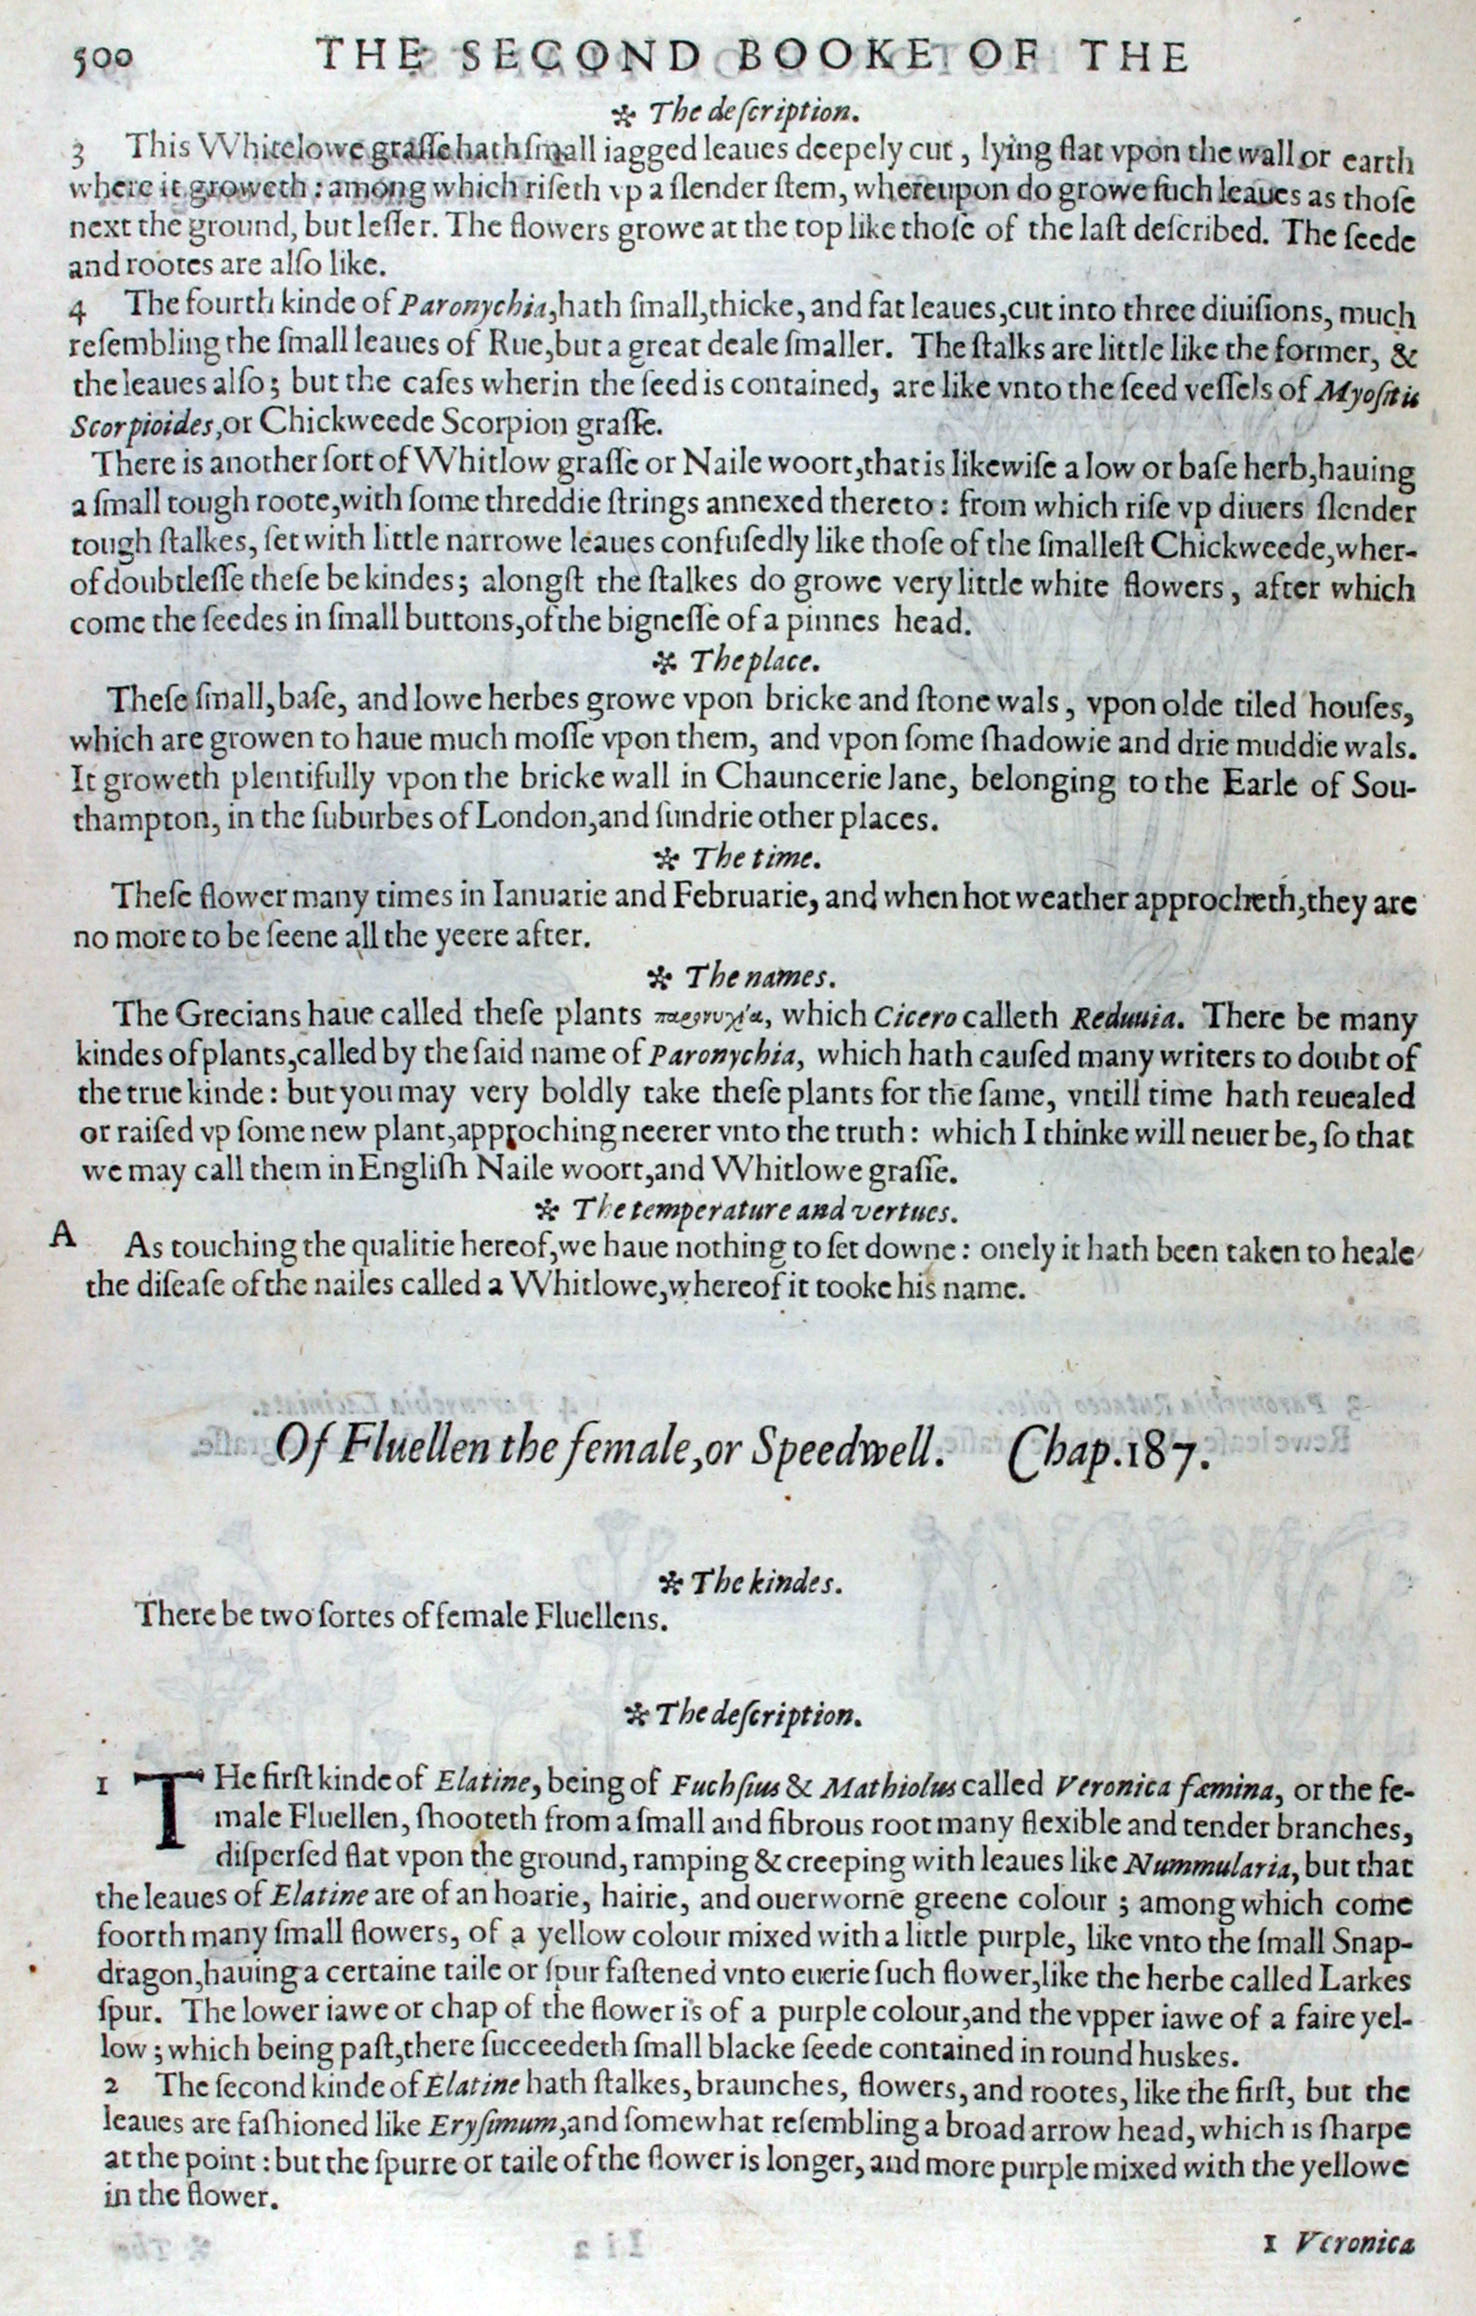 500 THE SECOND BOOKE OF THE
✻ The deſcription.
3 This Whitelowe graſſe hath ſmall iagged leaues deepely cut, lying flat vpon the wall or earth
where it groweth: among which riſeth vp a ſlender ſtem, whereupon do growe ſuch leaues as thoſe
next the ground, but leſſer. The flowers growe at the top like thoſe of the laſt deſcribed. The ſeede
and rootes are alſo like.
4 The fourth kinde of Paronychia, hath ſmall, thicke, and fat leaues, cut into three diuiſions, much
reſembling the ſmall leaues of Rue, but a great deale ſmaller. The ſtalks are little like the former, &
the leaues alſo; but the caſes wherin the ſeed is contained, are like vnto the ſeed veſſels of Myoſitis
Scorpioides, or Chickweede Scorpion graſſe.
There is another ſort of Whitlow graſſe or Naile woort, that is likewiſe a low or baſe herb, hauing
a ſmall tough roote, with ſome threddie ſtrings annexed thereto: from which riſe vp diuers ſlender
tough ſtalkes, ſet with little narrowe leaues confuſedly like thoſe of the ſmalleſt Chickweede, wher-
of doubtleſſe theſe be kindes; alongſt the ſtalkes do growe very little white flowers, after which
come the ſeedes in ſmall buttons, of the bigneſſe of a pinnes head.
✻ The place.
Theſe ſmall, baſe, and lowe herbes growe vpon bricke and ſtone wals, vpon olde tiled houſes,
which are growen to haue much moſſe vpon them, and vpon ſome ſhadowie and drie muddie wals.
It groweth plentifully vpon the bricke wall in Chauncerie lane, belonging to the Earle of Sou-
thampton, in the ſuburbes of London, and ſundrie other places.
✻ The time.
Theſe flower many times in Ianuarie and Februarie, and when hot weather approcheth, they are
no more to be ſeene all the yeere after.
✻ The names.
The Grecians haue called theſe plants παρονυχία, which Cicero calleth Reduuia. There be many
kindes of plants, called by the ſaid name of Paronychia, which hath cauſed many writers to doubt of
the true kinde: but you may very boldly take theſe plants for the ſame, vntill time hath reuealed
or raiſed vp ſome new plant, approching neerer vnto the truth: which I thinke will neuer be, ſo that
we may call them in Engliſh Naile woort, and Whitlowe graſſe.
✻ The temperature and vertues.
A As touching the qualitie hereof, we haue nothing to ſet downe: onely it hath been taken to heale
the diſeaſe of the nailes called a Whitlowe, whereof it tooke his name.
Of Fluellen the female, or Speedwell. Chap. 187.
✻ The kindes.
There be two ſortes of female Fluellens.
✻ The deſcription.
1 THe firſt kinde of Elatine, being of Fuchſius & Mathiolus called Veronica fæmina, or the fe-
male Fluellen, ſhooteth from a ſmall and fibrous root many flexible and tender branches,
diſperſed flat vpon the ground, ramping & creeping with leaues like Nummularia, but that
the leaues of Elatine are of an hoarie, hairie, and ouerworne greene colour; among which come
foorth many ſmall flowers, of a yellow colour mixed with a little purple, like vnto the ſmall Snap-
dragon, hauing a certaine taile or ſpur faſtened vnto euerie ſuch flower, like the herbe called Larkes
ſpur. The lower iawe or chap of the flower is of a purple colour, and the vpper iawe of a faire yel-
low; which being paſt, there ſucceedeth ſmall blacke ſeede contained in round huskes.
2 The ſecond kinde of Elatine hath ſtalkes, braunches, flowers, and rootes, like the firſt, but the
leaues are faſhioned like Eryſimum, and ſomewhat reſembling a broad arrow head, which is ſharpe
at the point: but the ſpurre or taile of the flower is longer, and more purple mixed with the yellowe
in the flower.
1 Veronica